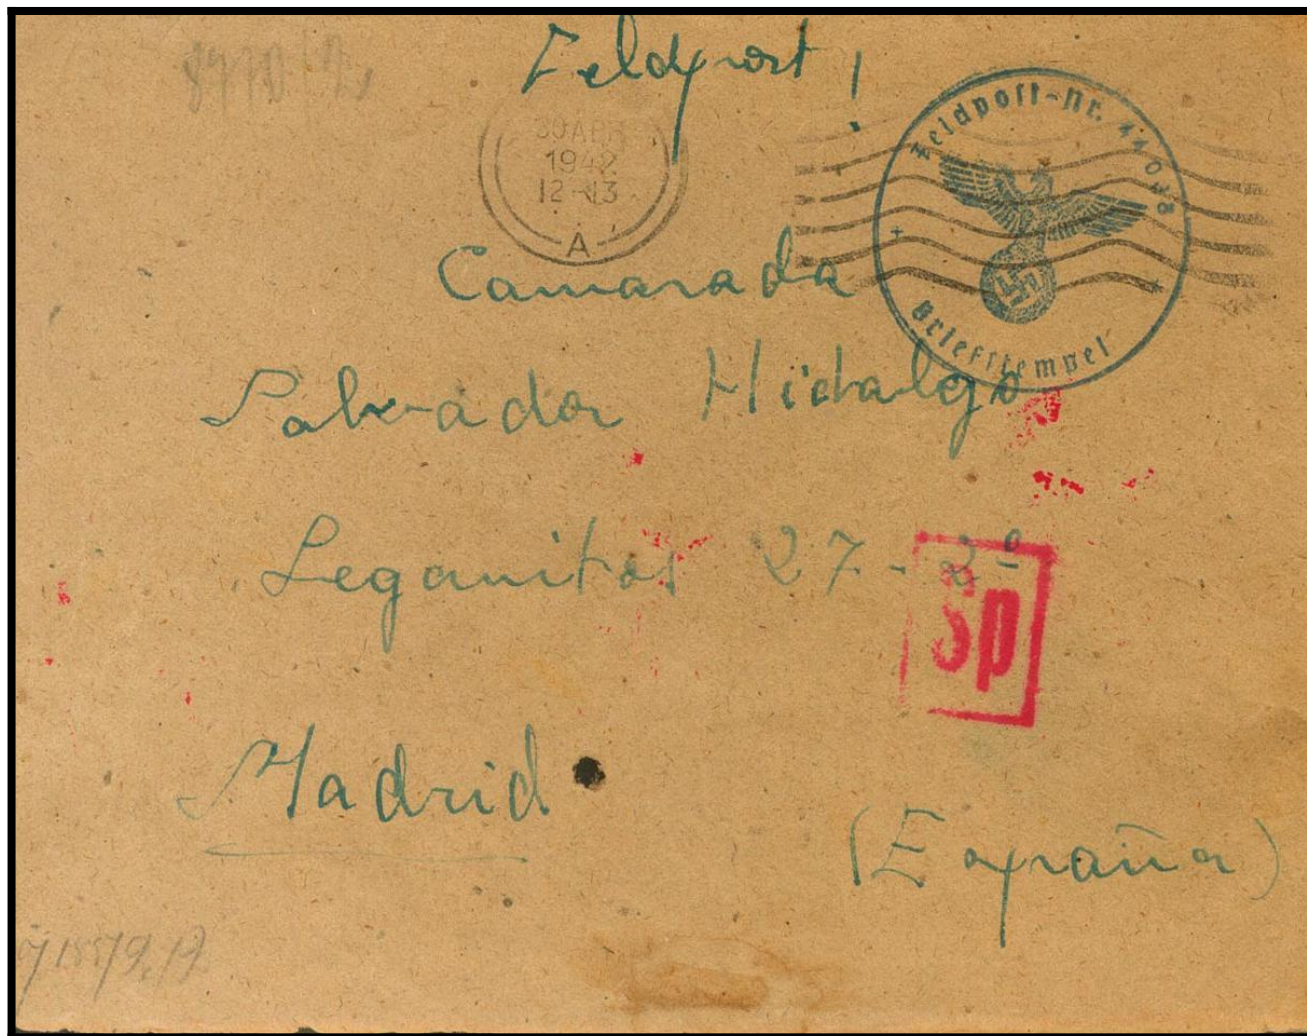 Feldpost!
30 APR
1942
12-13
A
Feldpost-Nr. 44038
Briefstempel
Camarada
Salvador Hidalgo
Leganitos 27-2º
Sp
Madrid
(España)